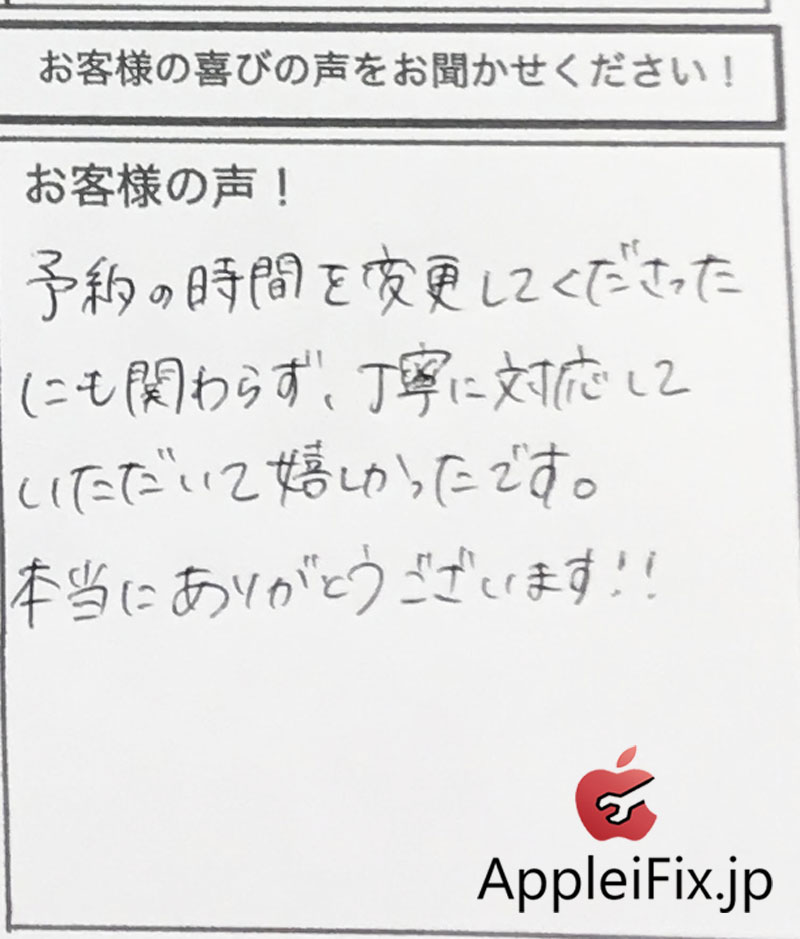 お客様の喜びの声をお聞かせください！
お客様の声！
予約の時間を変更してくださった
にも関わらず、丁寧に対応して
いただいて嬉しかったです。
本当にありがとうございます!!
AppleiFix.jp